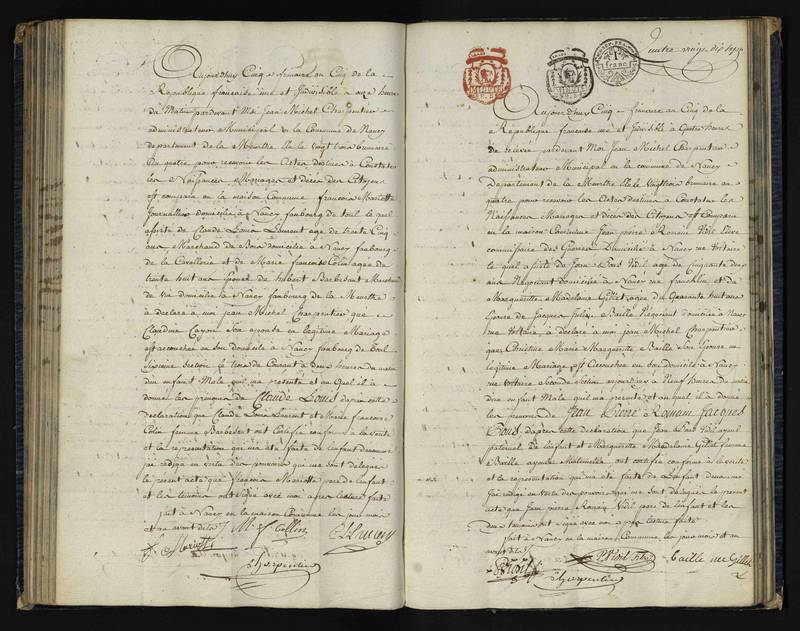 Aujourd'huy Cinq frimaire an Cinq de la
République française une et Indivisible à onze heures
du Matin pardevant Moi Jean Michel Charpentier
administrateur Municipal de la Commune de Nancy
département de la Meurthe élu le vingt trois brumaire
an quatre pour recevoir les Actes destinés à Constater
les Naissances Mariages et décès des Citoyens
est comparu en la maison Commune françois Mariotte
Journallier domicilié à Nancy faubourg de toul le quel
assisté de Claude Louis Laurent agé de trente Cinq
ans Marchand de Bois domicilié à Nancy faubourg
de la et de Marie françoise Colin agée de
trente huit ans Epouse de hubert Barbesant Marchand
de domicilié à Nancy faubourg de la Meurthe
à déclaré à moi jean Michel Charpentier que
Claudine son épouse en légitime Mariage
est accouchée en son domicile à Nancy faubourg de toul
Sixieme Section le trois du Courant à deux heures du matin
d'un enfant Male qu'il m'a présenté et au Quel il à
donné les prénoms de Claude Louis d'après cette
déclaration que Claude Louis Laurent et Marie françoise
Colin femme Barbesant ont Certifié conforme à la vérité
et la représentation qui m'a été faite de l'enfant dénommé
jai rédigé en vertu des pouvoirs qui me sont délégués
le présent acte que françois Mariotte pere de l'enfant
et les témoins ont signé avec moi après lecture faite
fait à Nancy en la maison Commune les jour mois
et an avant dits
M. f. Collin
Laurent
f. Mariotte
Charpentier
quatre vingt dix sept
1 franc
Aujourd'huy Cinq frimaire an Cinq de la
République française une et Indivisible à quatre heures
de relevée pardevant Moi Jean Michel Charpentier
administrateur Municipal en la commune de Nancy
Département de la Meurthe élu le vingt trois brumaire an
quatre pour recevoir les Actes destinés à Constater les
Naissances Mariages et décès des Citoyens est Comparu
en la maison Commune Jean pierre Romain Vidil
commissaire des Guerres Domicilié à Nancy rue Voltaire
le quel assisté de Jean Vidil agé de Cinquante
ans Négociant domicilié à Nancy rue franklin et de
Marguerite Madelaine Gillet agée de Quarante huit ans
Epouse de Jacques Baille Négociant domicilié à Nancy
rue Voltaire à déclaré à moi jean Michel Charpentier
que Christine Marie Marguerite Baille Son Epouse en
légitime Mariage est accouchée en son domicile à Nancy
rue Voltaire seconde Section aujourd'huy à Neuf heures du matin
d'un enfant Male qu'il m'a présenté et au quel il à donné
les prénoms de Jean Pierre Romain Jacques
d'après cette déclaration que Jean Vidil ayeul
paternel de l'enfant et Marguerite Madelaine Gillet femme
Baille ayeule Maternelle ont certifié conforme à la vérité
et la représentation qui m'a été faite de l'enfant dénommé
jai rédigé en vertu des pouvoirs qui me sont délégués le présent
acte que Jean pierre Romain Vidil pere de l'enfant et les
deux témoins ont signé avec moi après lecture faite
fait à Nancy en la maison Commune les jour mois et
an avant dits
Vidil
Baille née Gillet
Charpentier